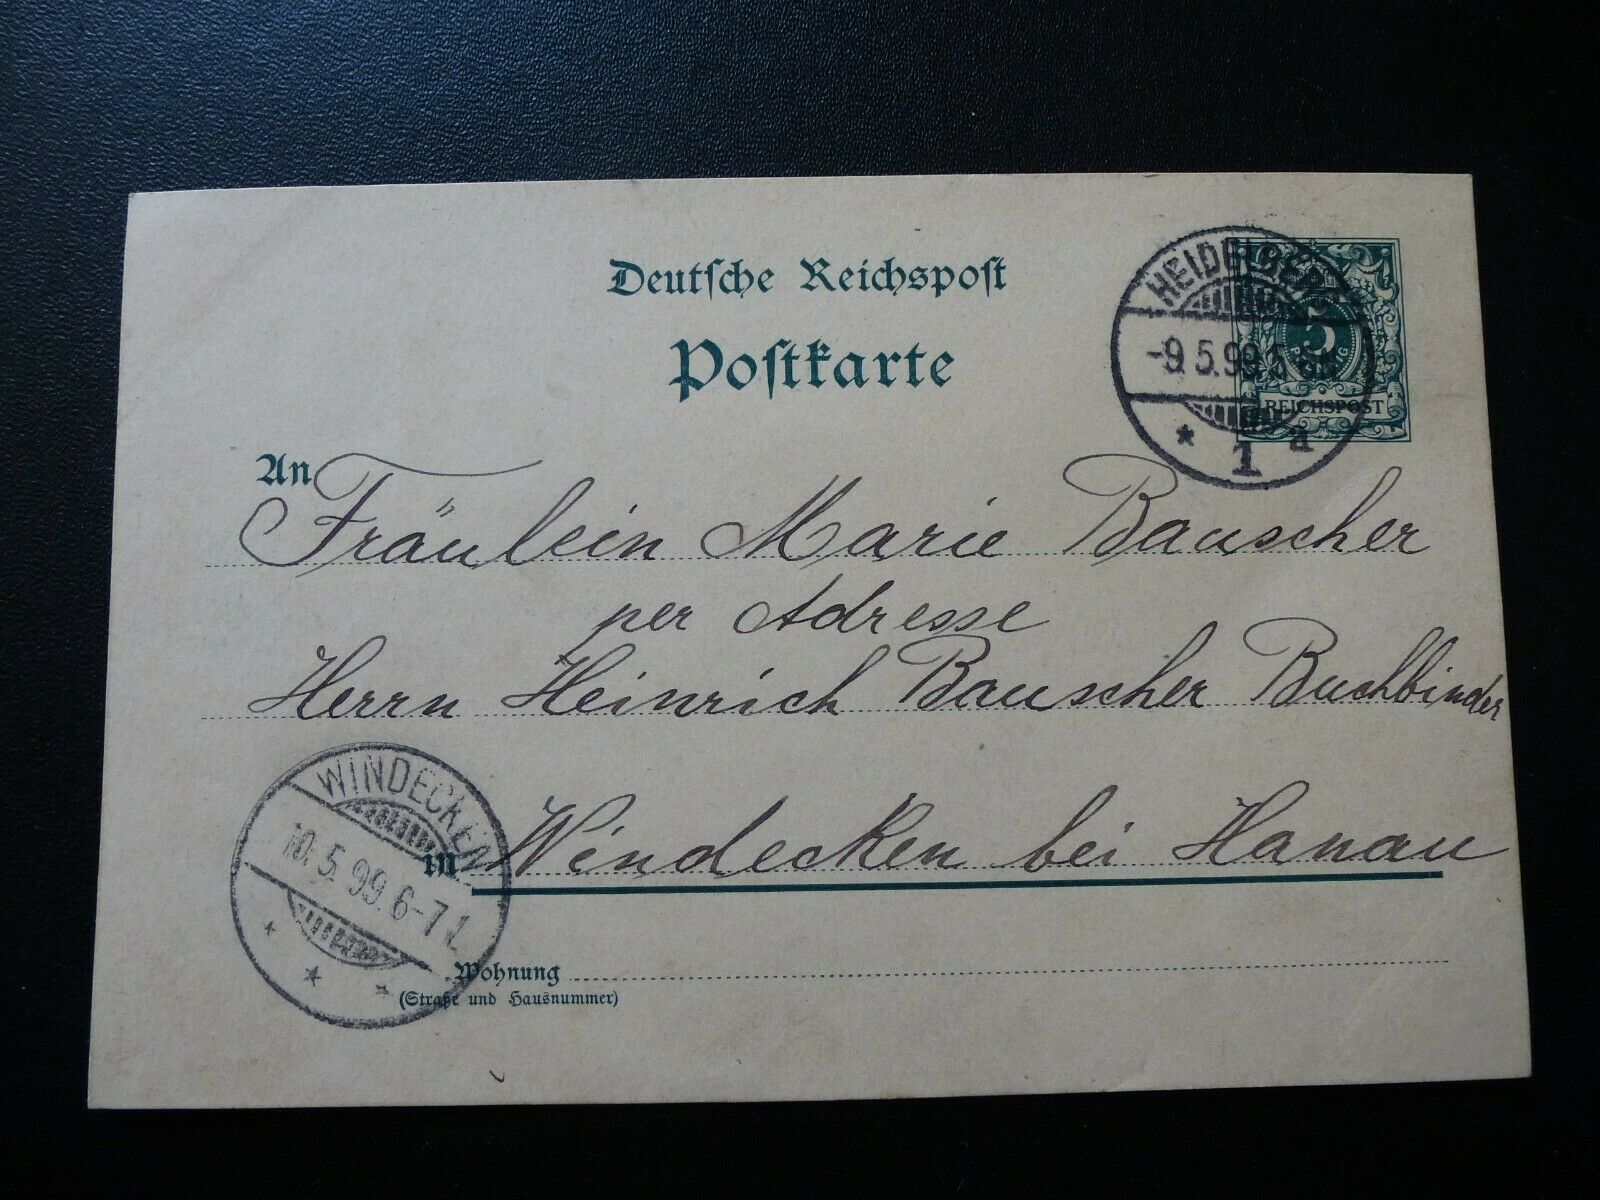 Deutsche Reichspost
Postkarte
HEIDELBERG
-9.5.99.5-6N
* 1 a
5
PFENNIG
REICHSPOST
An Fräulein Marie Bauscher
per Adresse
Herrn Heinrich Bauscher Buchbinder
in Windecken bei Hanau
WINDECKEN
10.5.99.6-7
* * *
Wohnung
(Straße und Hausnummer)